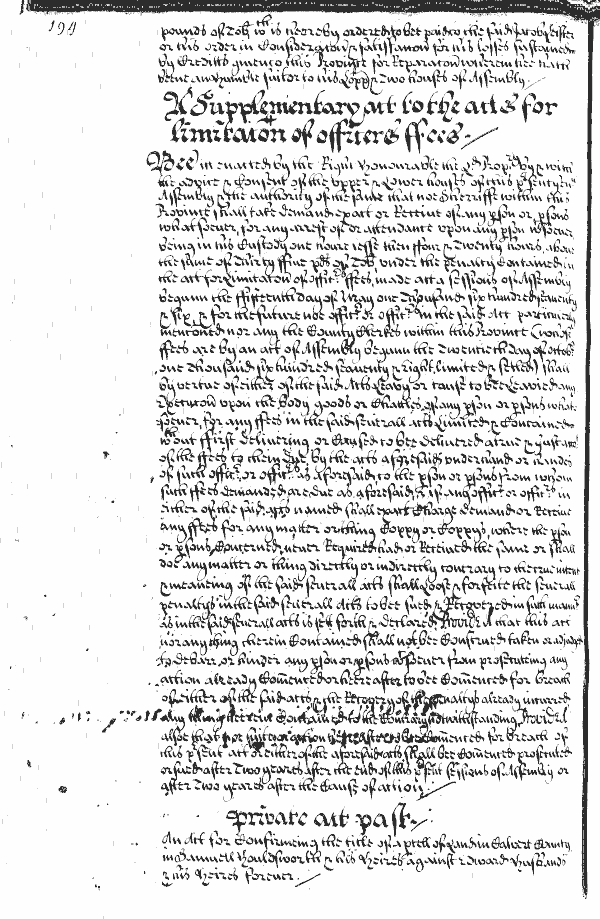 194
pounds of Tob. wch is heereby ordered to bee paid to the said Jacob
or this order in Consideracon & satisfaction for his losses sustained
by Creditts given to this Province for Reparacon wherein hee hath
beene an humble suitor to his Lopp & Two houses of Assembly
A Supplementary act to the acts for
limitacon of officers ffees
Bee itt enacted by the Right Honourable the Ld Propry by & with
the advice & Consent of the upper & Lower houses of this psent Genll
Assembly & the authority of the same that noe Sheriffe within this
Province shall take demand expect or Receive of any pson or psons
whatsoever, for any arrest of or attendance upon any pson whosoever
being in his Custody one houre lesse then ffour & Twenty hours, above
the sume of Thirty ffive pds of Tob. under the penalty Contained in
the act for Limitacon of officrs ffees, made att a sessions of Assembly
begunn the ffifteenth day of May one Thousand six hundred seaventy
& six, & for the future noe officr or officrs in the said Act particurly
mentioned nor any the County Clerkes within this Province (whose
ffees are by an act of Assembly begunn the Twentieth day of octobr
one Thousand six hundred seaventy & Eight limited & setled) shall
by vertue of either of the said Acts Leavy or cause to bee Leavied any
Execucon upon the body goods or Chattles of any pson or psons what
soever, for any ffees in the said severall acts Limited & Contained
wthout ffirst delivering or Caused to bee delivered a true & just acct
of the ffees to them due, by the acts aforesaid under hand or hands
of such officr, or officrs as aforesaid, to the pson or psons from whom
such ffees demanded are due as aforesaid, & if any officr or officrs in
either of the said acts named shall expect Charge demand or Receive
any ffees for any matter or thing Coppy or Coppys, where the pson
or psons Concerned never Required had or Received the same or shall
doe any matter or thing directly or indirectly contrary to the true intent
& meaneing of the said severall acts shall loose & forfeite the severall
penaltys in the said severall Acts to bee sued & Recovered in such manner
as in the said severall acts is sett forth & declared, Provided that this act
nor any thing therein Contained shall not bee Construed taken or adjudged
to debarr or hinder any pson or psons whosoever from prosecuteing any
action already Comenced or heereafter to bee Comenced for breach
of either of the said acts & the Recovery of the penaltys already incurred
any thing herein Contained to the Contrary notwithstanding, Provided
alsoe that noe suite or action bee Comenced for breach of
this psent act or either of the aforesaid acts shall bee Comenced prosecuted
or sued after Two yeares after the end of this psent sessions of Assembly or
after Two yeares after the Cause of action
private act past
An Act for Confirmeing the title of a pcell of Land in Calvert County
in Samuell Houldsworth & his Heires against Edward Husbands
& his Heires forever